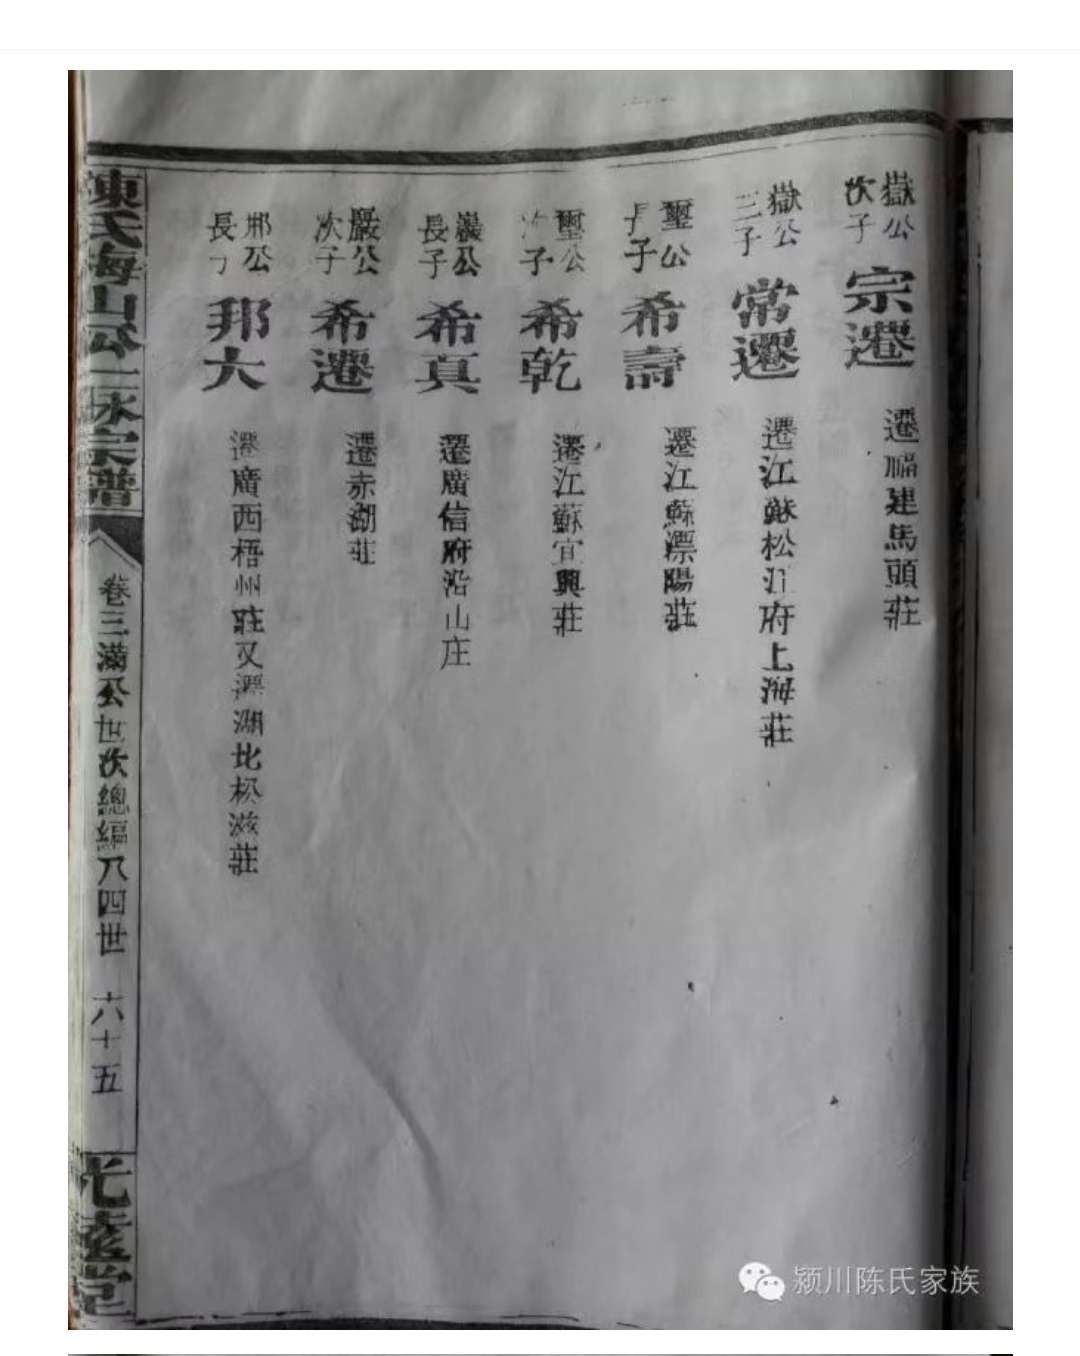 嶽公
次子
宗遷
遷福建馬頭莊
嶽公
三子
常遷
遷江蘇松江府上海莊
璽公
長子
希壽
遷江蘇溧陽莊
璽公
次子
希乾
遷江蘇宜興莊
巖公
長子
希真
遷廣信府沿山庄
嚴公
次子
希遷
遷赤湖莊
邢公
長
邦大
遷廣西梧州莊又遷湖北松滋莊
陳氏海山公一脉宗譜
卷三滿公世次總編八四世 六十五
光遠堂
颍川陈氏家族